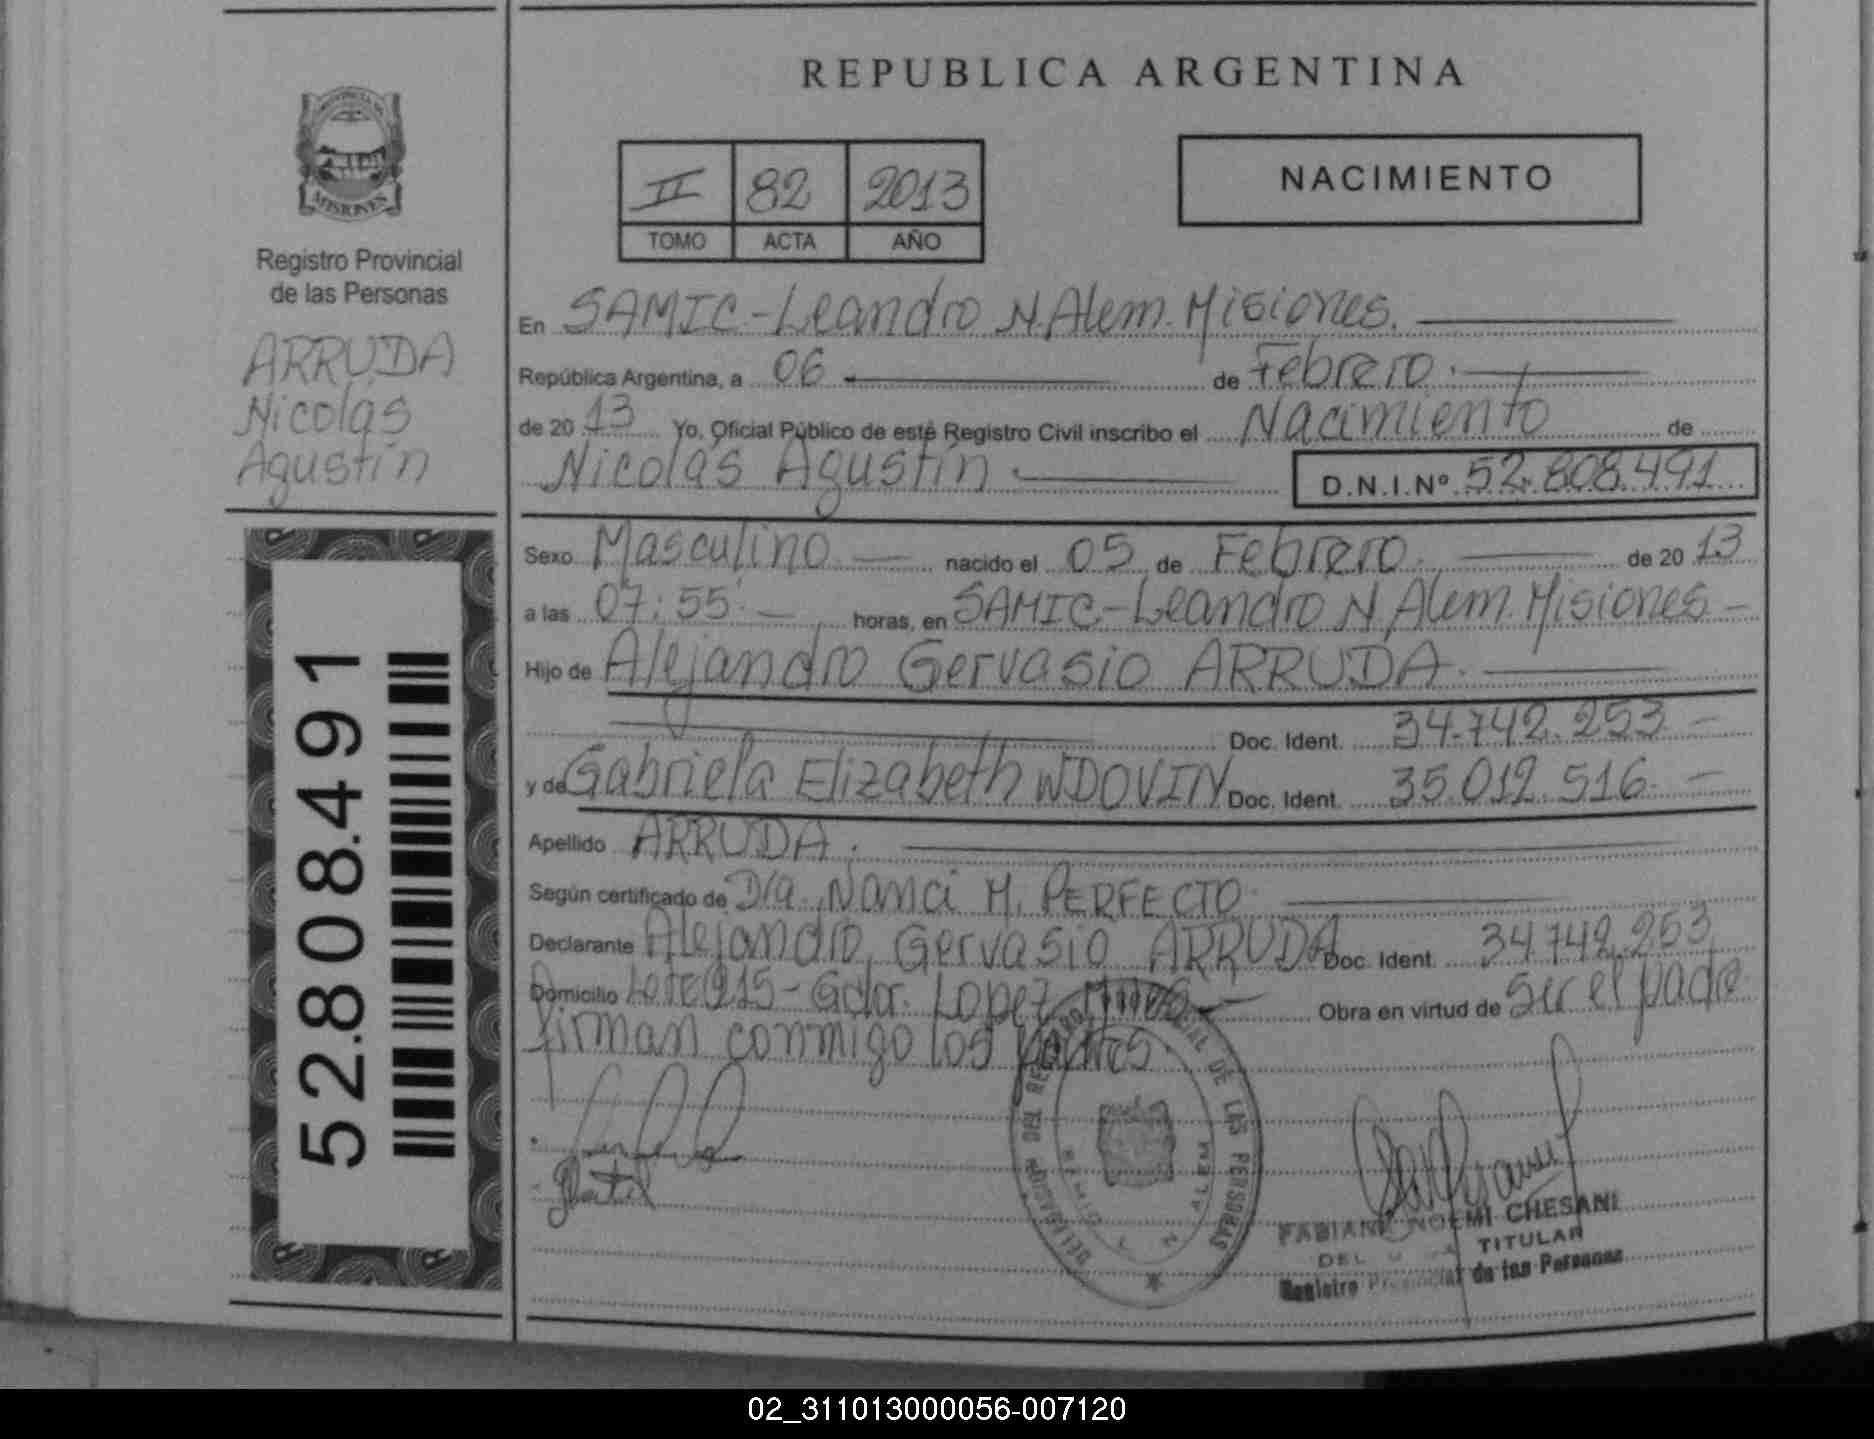 REPUBLICA ARGENTINA
PROVINCIA DE
MISIONES
Registro Provincial
de las Personas
ARRUDA
Nicolás
Agustín
52.808.491
II 82 2013
TOMO ACTA AÑO
NACIMIENTO
En SAMIC - Leandro N. Alem. Misiones.
República Argentina, a 06 de Febrero.
de 20 13 Yo, Oficial Público de este Registro Civil inscribo el Nacimiento de
Nicolás Agustín D.N.I.Nº 52.808.491
Sexo Masculino nacido el 05 de Febrero. de 20 13
a las 07:55 horas, en SAMIC - Leandro N Alem. Misiones
Hijo de Alejandro Gervasio ARRUDA.
Doc. Ident. 34.742.253
y de Gabriela Elizabeth WDOVIN Doc. Ident. 35.012.516.
Apellido ARRUDA.
Según certificado de Dra. Nanci M. PERFECTO
Declarante Alejandro Gervasio ARRUDA Doc. Ident. 34.742.253
Domicilio Lote 215 - Gdor. Lopez Obra en virtud de Ser el padre
Firman conmigo los padres.
DELEGACION DEL REGISTRO PROVINCIAL DE LAS PERSONAS
ALEM
FABIANA NOEMI CHESANI
TITULAR
Registro Provincial de las Personas
02_311013000056-007120